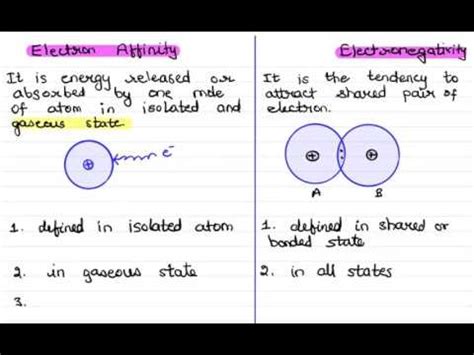 Electron Affinity
It is energy released or
absorbed by one mole
of atom in isolated and
gaseous state.
+ e⁻
1. defined in isolated atom
2. in gaseous state
3.
Electronegativity
It is the tendency to
attract shared pair of
electron.
+ : +
A B
1. defined in shared or
bonded state
2. in all states